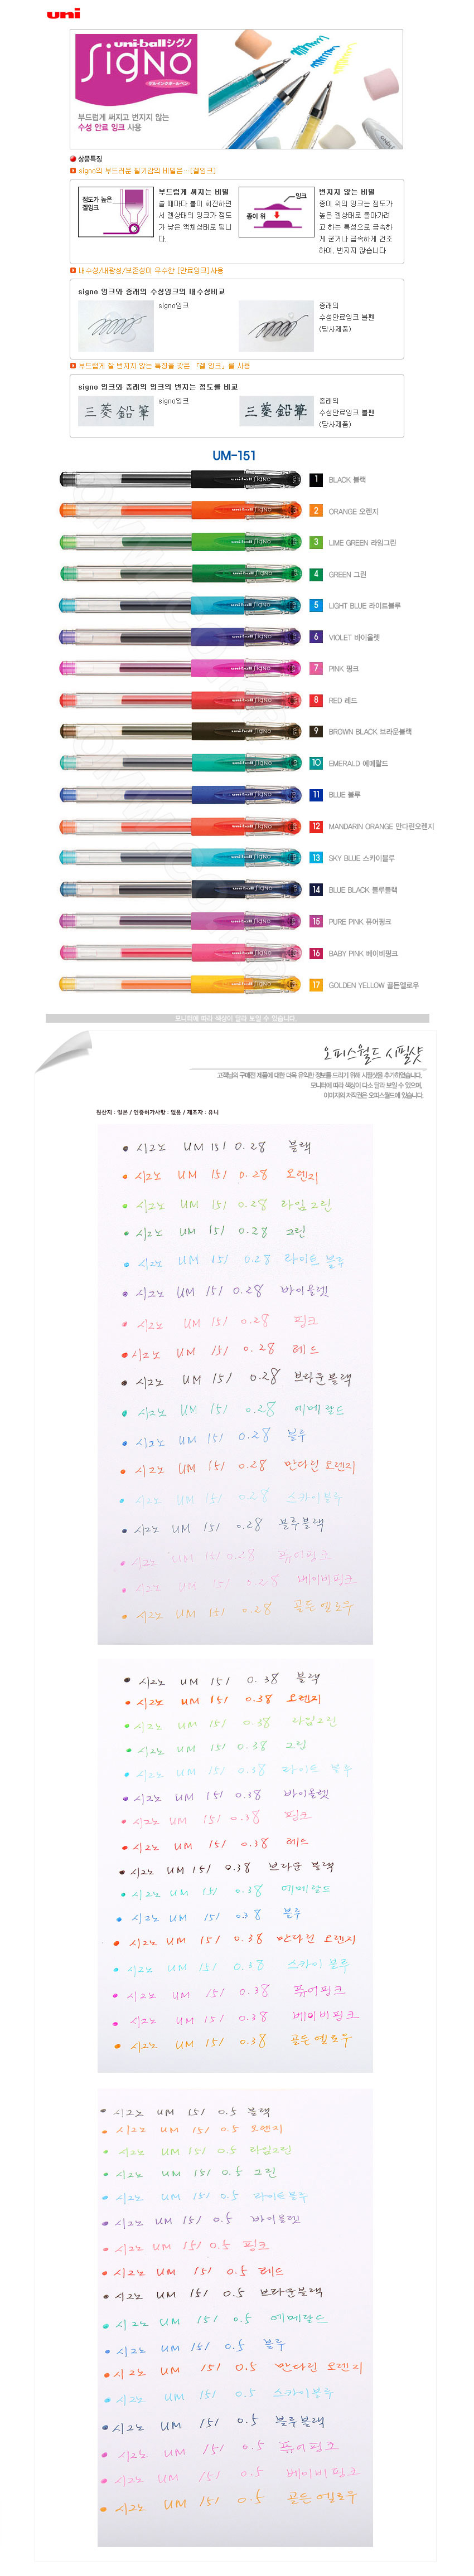 uni
uni-ball シグノ
SigNo
ゲルインクボールペン
부드럽게 써지고 번지지 않는
수성 안료 잉크 사용
상품특징
signo의 부드러운 필기감의 비밀은…[겔잉크]
점도가 높은
겔잉크
부드럽게 써지는 비밀
쓸 때마다 볼이 회전하면
서 겔상태의 잉크가 점도
가 낮은 액체상태로 됩니
다.
잉크
종이 위
번지지 않는 비밀
종이 위의 잉크는 점도가
높은 겔상태로 돌아가려
고 하는 특성으로 급속하
게 굳거나 급속하게 건조
하여, 번지지 않습니다
내수성/내광성/보존성이 우수한 [안료잉크]사용
signo 잉크와 종래의 수성잉크의 내수성비교
signo잉크
종래의
수성안료잉크 볼펜
(당사제품)
부드럽게 잘 번지지 않는 특징을 갖춘 『겔 잉크』를 사용
signo 잉크와 종래의 잉크의 번지는 정도를 비교
三菱鉛筆
signo잉크
三菱鉛筆
종래의
수성안료잉크 볼펜
(당사제품)
UM-151
1 BLACK 블랙
2 ORANGE 오렌지
3 LIME GREEN 라임그린
4 GREEN 그린
5 LIGHT BLUE 라이트블루
6 VIOLET 바이올렛
7 PINK 핑크
8 RED 레드
9 BROWN BLACK 브라운블랙
10 EMERALD 에메랄드
11 BLUE 블루
12 MANDARIN ORANGE 만다린오렌지
13 SKY BLUE 스카이블루
14 BLUE BLACK 블루블랙
15 PURE PINK 퓨어핑크
16 BABY PINK 베이비핑크
17 GOLDEN YELLOW 골든옐로우
모니터에 따라 색상이 달라 보일 수 있습니다
오피스월드 시필샷
고객님의 구매전 제품에 대한 더욱 유익한 정보를 드리기 위해 시필샷을 추가하였습니다.
모니터에 따라 색상이 다소 달라 보일 수 있으며,
이미지의 저작권은 오피스월드에 있습니다.
원산지 : 일본 / 인증허가사항 : 없음 / 제조자 : 유니
시그노 UM 151 0.28 블랙
시그노 UM 151 0.28 오렌지
시그노 UM 151 0.28 라임그린
시그노 UM 151 0.28 그린
시그노 UM 151 0.28 라이트 블루
시그노 UM 151 0.28 바이올렛
시그노 UM 151 0.28 핑크
시그노 UM 151 0.28 레드
시그노 UM 151 0.28 브라운블랙
시그노 UM 151 0.28 에메랄드
시그노 UM 151 0.28 블루
시그노 UM 151 0.28 만다린 오렌지
시그노 UM 151 0.28 스카이블루
시그노 UM 151 0.28 블루블랙
시그노 UM 151 0.28 퓨어핑크
시그노 UM 151 0.28 베이비핑크
시그노 UM 151 0.28 골든 옐로우
시그노 UM 151 0.38 블랙
시그노 UM 151 0.38 오렌지
시그노 UM 151 0.38 라임그린
시그노 UM 151 0.38 그린
시그노 UM 151 0.38 라이트 블루
시그노 UM 151 0.38 바이올렛
시그노 UM 151 0.38 핑크
시그노 UM 151 0.38 레드
시그노 UM 151 0.38 브라운 블랙
시그노 UM 151 0.38 에메랄드
시그노 UM 151 0.38 블루
시그노 UM 151 0.38 만다린 오렌지
시그노 UM 151 0.38 스카이 블루
시그노 UM 151 0.38 퓨어핑크
시그노 UM 151 0.38 베이비핑크
시그노 UM 151 0.38 골든 옐로우
시그노 UM 151 0.5 블랙
시그노 UM 151 0.5 오렌지
시그노 UM 151 0.5 라임그린
시그노 UM 151 0.5 그린
시그노 UM 151 0.5 라이트블루
시그노 UM 151 0.5 바이올렛
시그노 UM 151 0.5 핑크
시그노 UM 151 0.5 레드
시그노 UM 151 0.5 브라운블랙
시그노 UM 151 0.5 에메랄드
시그노 UM 151 0.5 블루
시그노 UM 151 0.5 만다린 오렌지
시그노 UM 151 0.5 스카이블루
시그노 UM 151 0.5 블루블랙
시그노 UM 151 0.5 퓨어핑크
시그노 UM 151 0.5 베이비핑크
시그노 UM 151 0.5 골든 옐로우